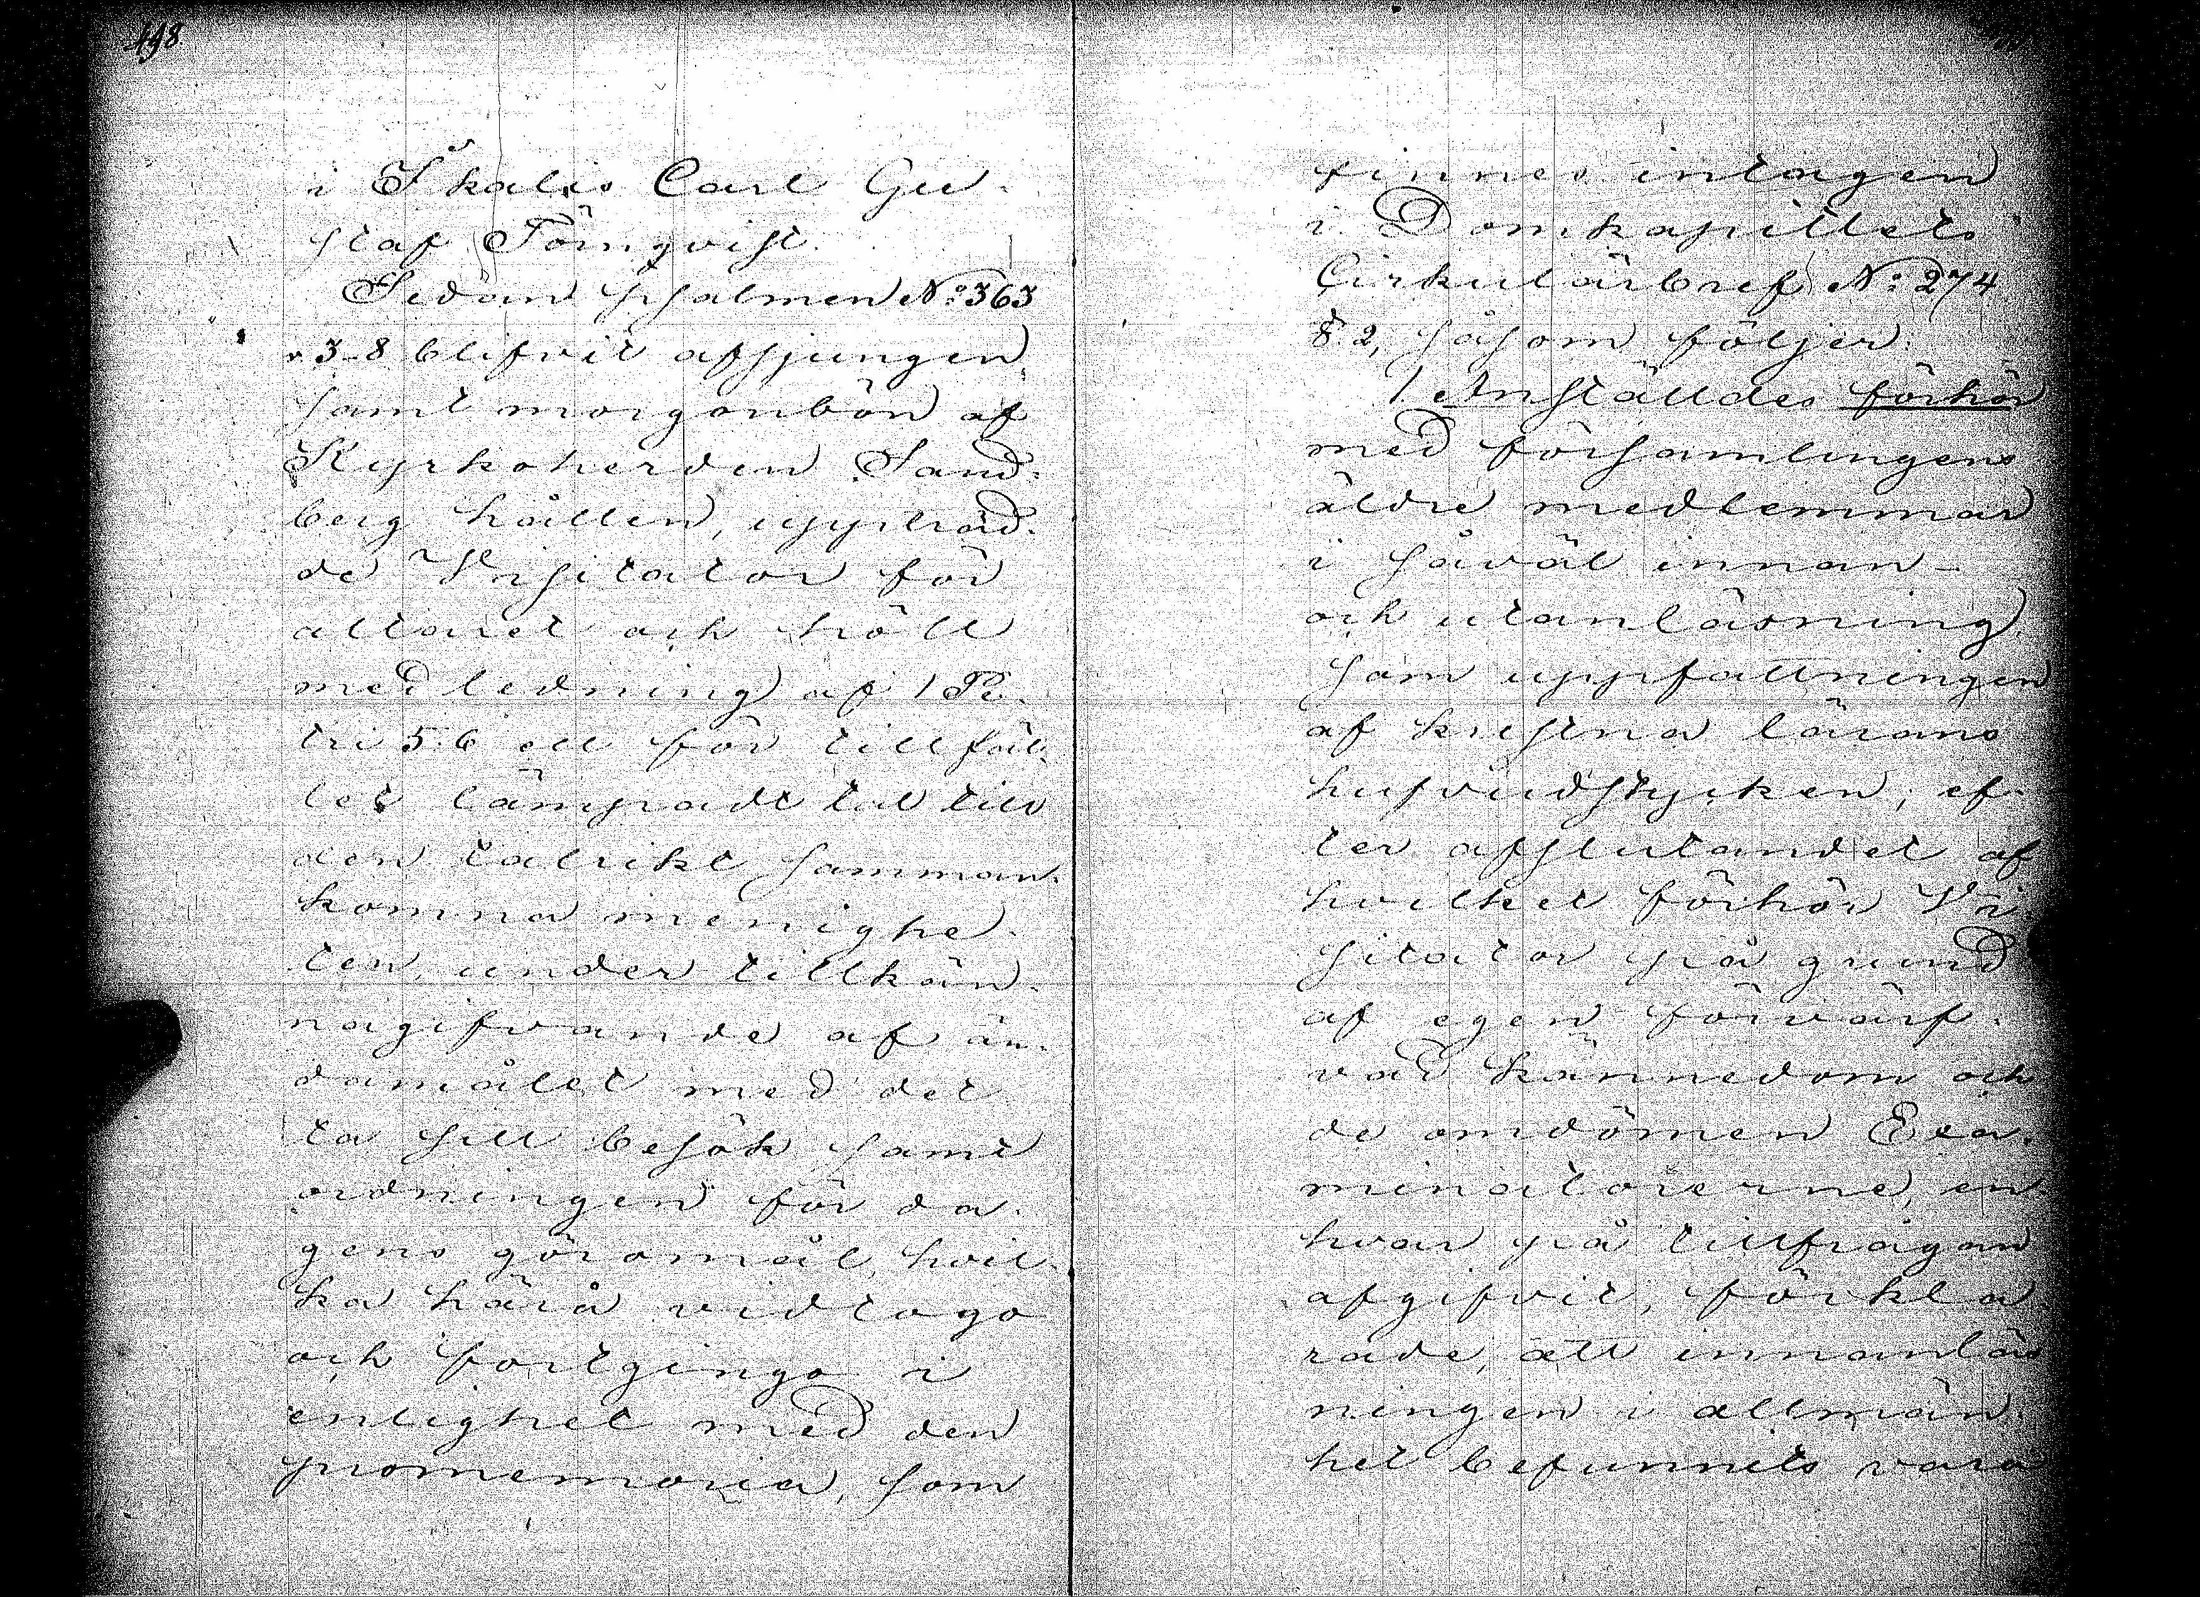 498.
i Skalis Carl Gu-
staf Törnqvist.
Sedan psalmen No: 363
v 3-8 blifvit afsjungen
samt morgonbön af
Kyrkoherden Sand-
berg hållen, uppträd-
de Visitator för
altaret och höll
med ledning af 1 Pe-
tri 5:6 ett för tillfäl-
let lämpadt tal till
den talrikt samman-
komna menighe-
ten, under tillkän-
nagifvande af än-
damålet med det-
ta sitt besök samt
ordningen för da-
gens göromål, hvil-
ka härå vidtogo
och fortgingo i
enlighet med den
promemoria, som
finnes intagen
i Domkapitlets
Cirkulärbref No: 274
§. 2, såsom följer:
1 Anställdes förhör
med församlingens
äldre medlemmar
i såväl innan-
och utanläsning,
som uppfattningen
af kristna lärans
hufvudstycken; ef-
ter afslutandet af
hvilket förhör Vi-
sitator på grund
af egen förvärf-
vad kännedom och
de omdömen Exa-
minatorerne, en-
hvar på tillfrågan
afgifvit, förkla-
rade, att innanläs-
ningen i allmän-
het befunnits vara